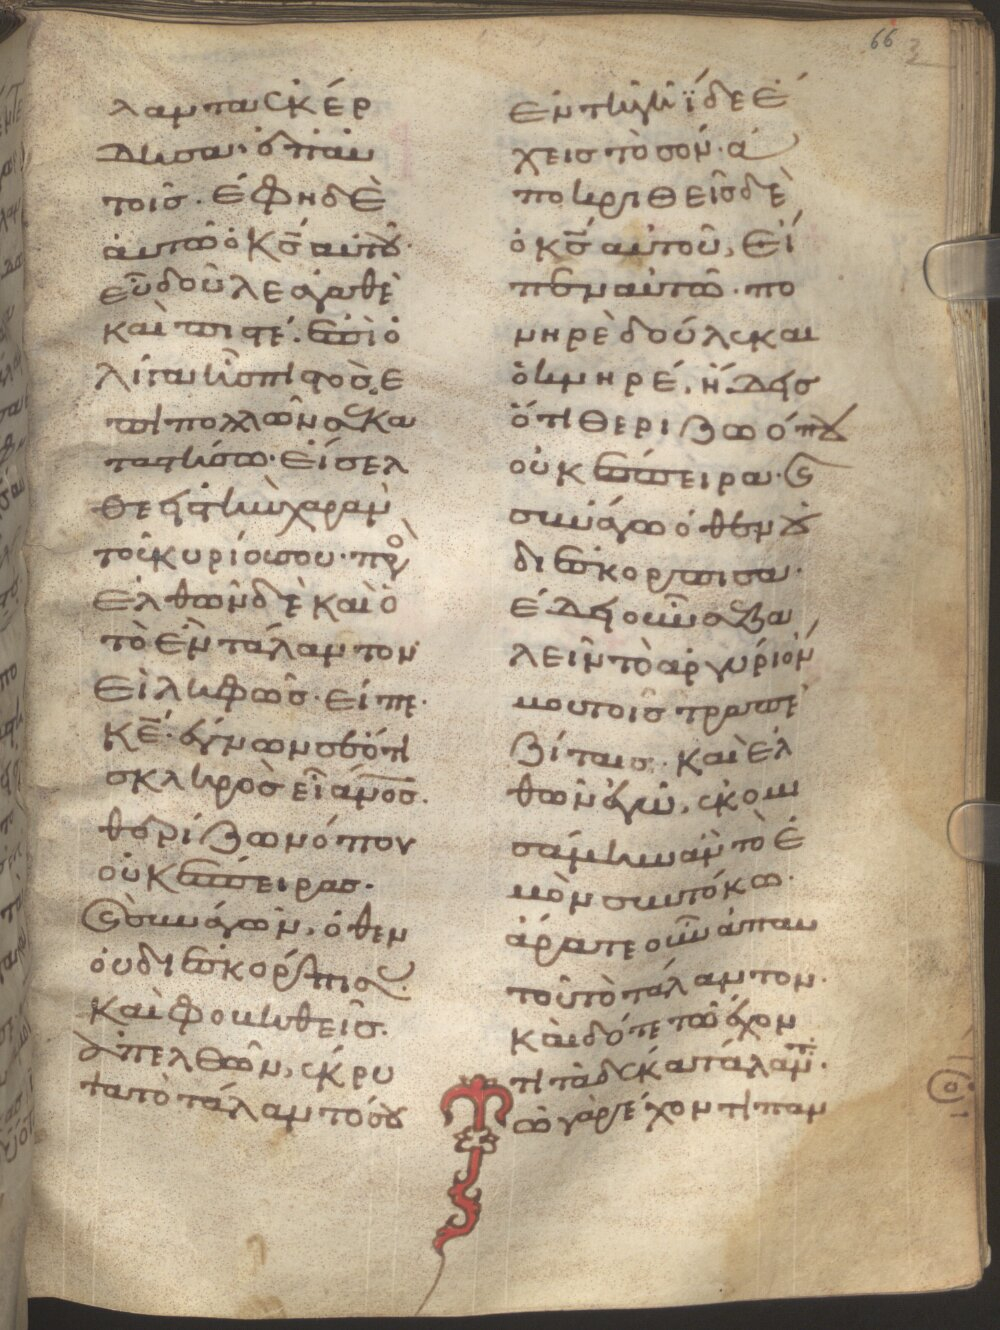 66
λαντα ἐκέρ
δησα ἐπ αὐ
τοῖς. ἔφη δὲ
αὐτῶ ὁ κ̅ς̅ αὐτοῦ·
εὖ δοῦλε ἀγαθὲ
καὶ πιστέ. ἐπὶ ὀ
λίγα ἦς πιστὸς ἐ
πὶ πολλῶν σε κα
ταστήσω· εἴσελ
θε εἰς τὴν χαρὰν
τοῦ κυρίου σου· προσ
ελθὼν δὲ καὶ ὁ
τὸ ἓν τάλαντον
εἰληφὼς. εἶπε·
κ̅ε̅· ἔγνων σε ὅτι
σκληρὸς εἶ α̅ν̅ο̅ς̅.
θερίζων ὅπου
οὐκ ἔσπειρας.
καὶ συνάγων, ὅθεν
οὐ διεσκόρπισας.
καὶ φοβηθεὶς.
ἀπελθὼν, ἔκρυ
ψα τὸ τάλαντόν σου
ἐν τῆ γῆ ἴδε ἔ
χεις τὸ σόν· ἀ
ποκριθεὶς δὲ
ὁ κ̅ς̅ αὐτοῦ, εἶ
πεν αὐτῶ· πο
νηρὲ δοῦλε καὶ
ὀκνηρέ, ἤδεις
ὅτι θερίζω ὅπου
οὐκ ἔσπειρα· καὶ
συνάγω ὅθεν οὐ
διεσκόρπισα·
ἔδει οὖν σε βα
λεῖν τὸ ἀργύριόν
μου τοῖς τραπε
ζίταις· καὶ ἐλ
θὼν ἐγὼ, ἐκομι
σάμην ἂν τὸ ἐ
μὸν σὺν τόκω·
ἄρατε οὖν ἀπ αὐ
τοῦ τὸ τάλαντον·
καὶ δότε τῶ ἔχον
τι τὰ δέκα τάλαντα·
τῶ γὰρ ἔχοντι παν